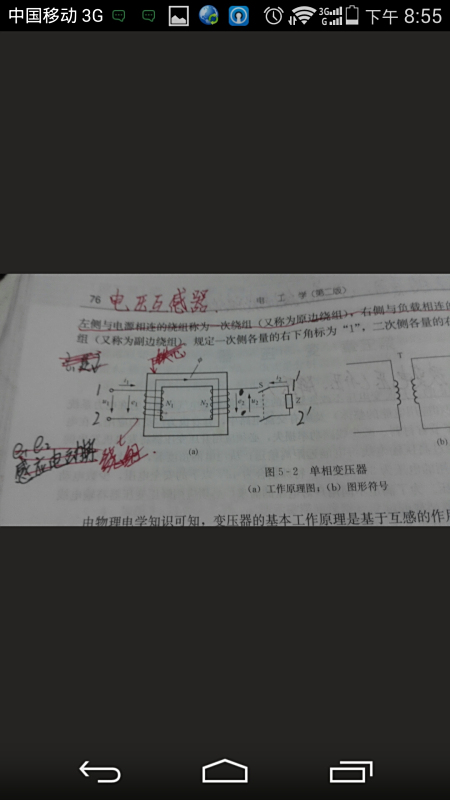 中国移动 3G
3G
G
下午 8:55
76 电压互感器
电 工 学（第二版）
左侧与电源相连的绕组称为一次绕组（又称为原边绕组），右侧与负载相连的
组（又称为副边绕组）。规定一次侧各量的右下角标为“1”，二次侧各量的右
铁芯
1 i₁ Φ S i₂ 1'
u₁ e₁ N₁ N₂ e₂ u₂ Z
2 2'
T
e₁ e₂
感应电动势
绕组
(a)
(b)
图 5-2 单相变压器
(a) 工作原理图；(b) 图形符号
由物理电学知识可知，变压器的基本工作原理是基于互感的作用